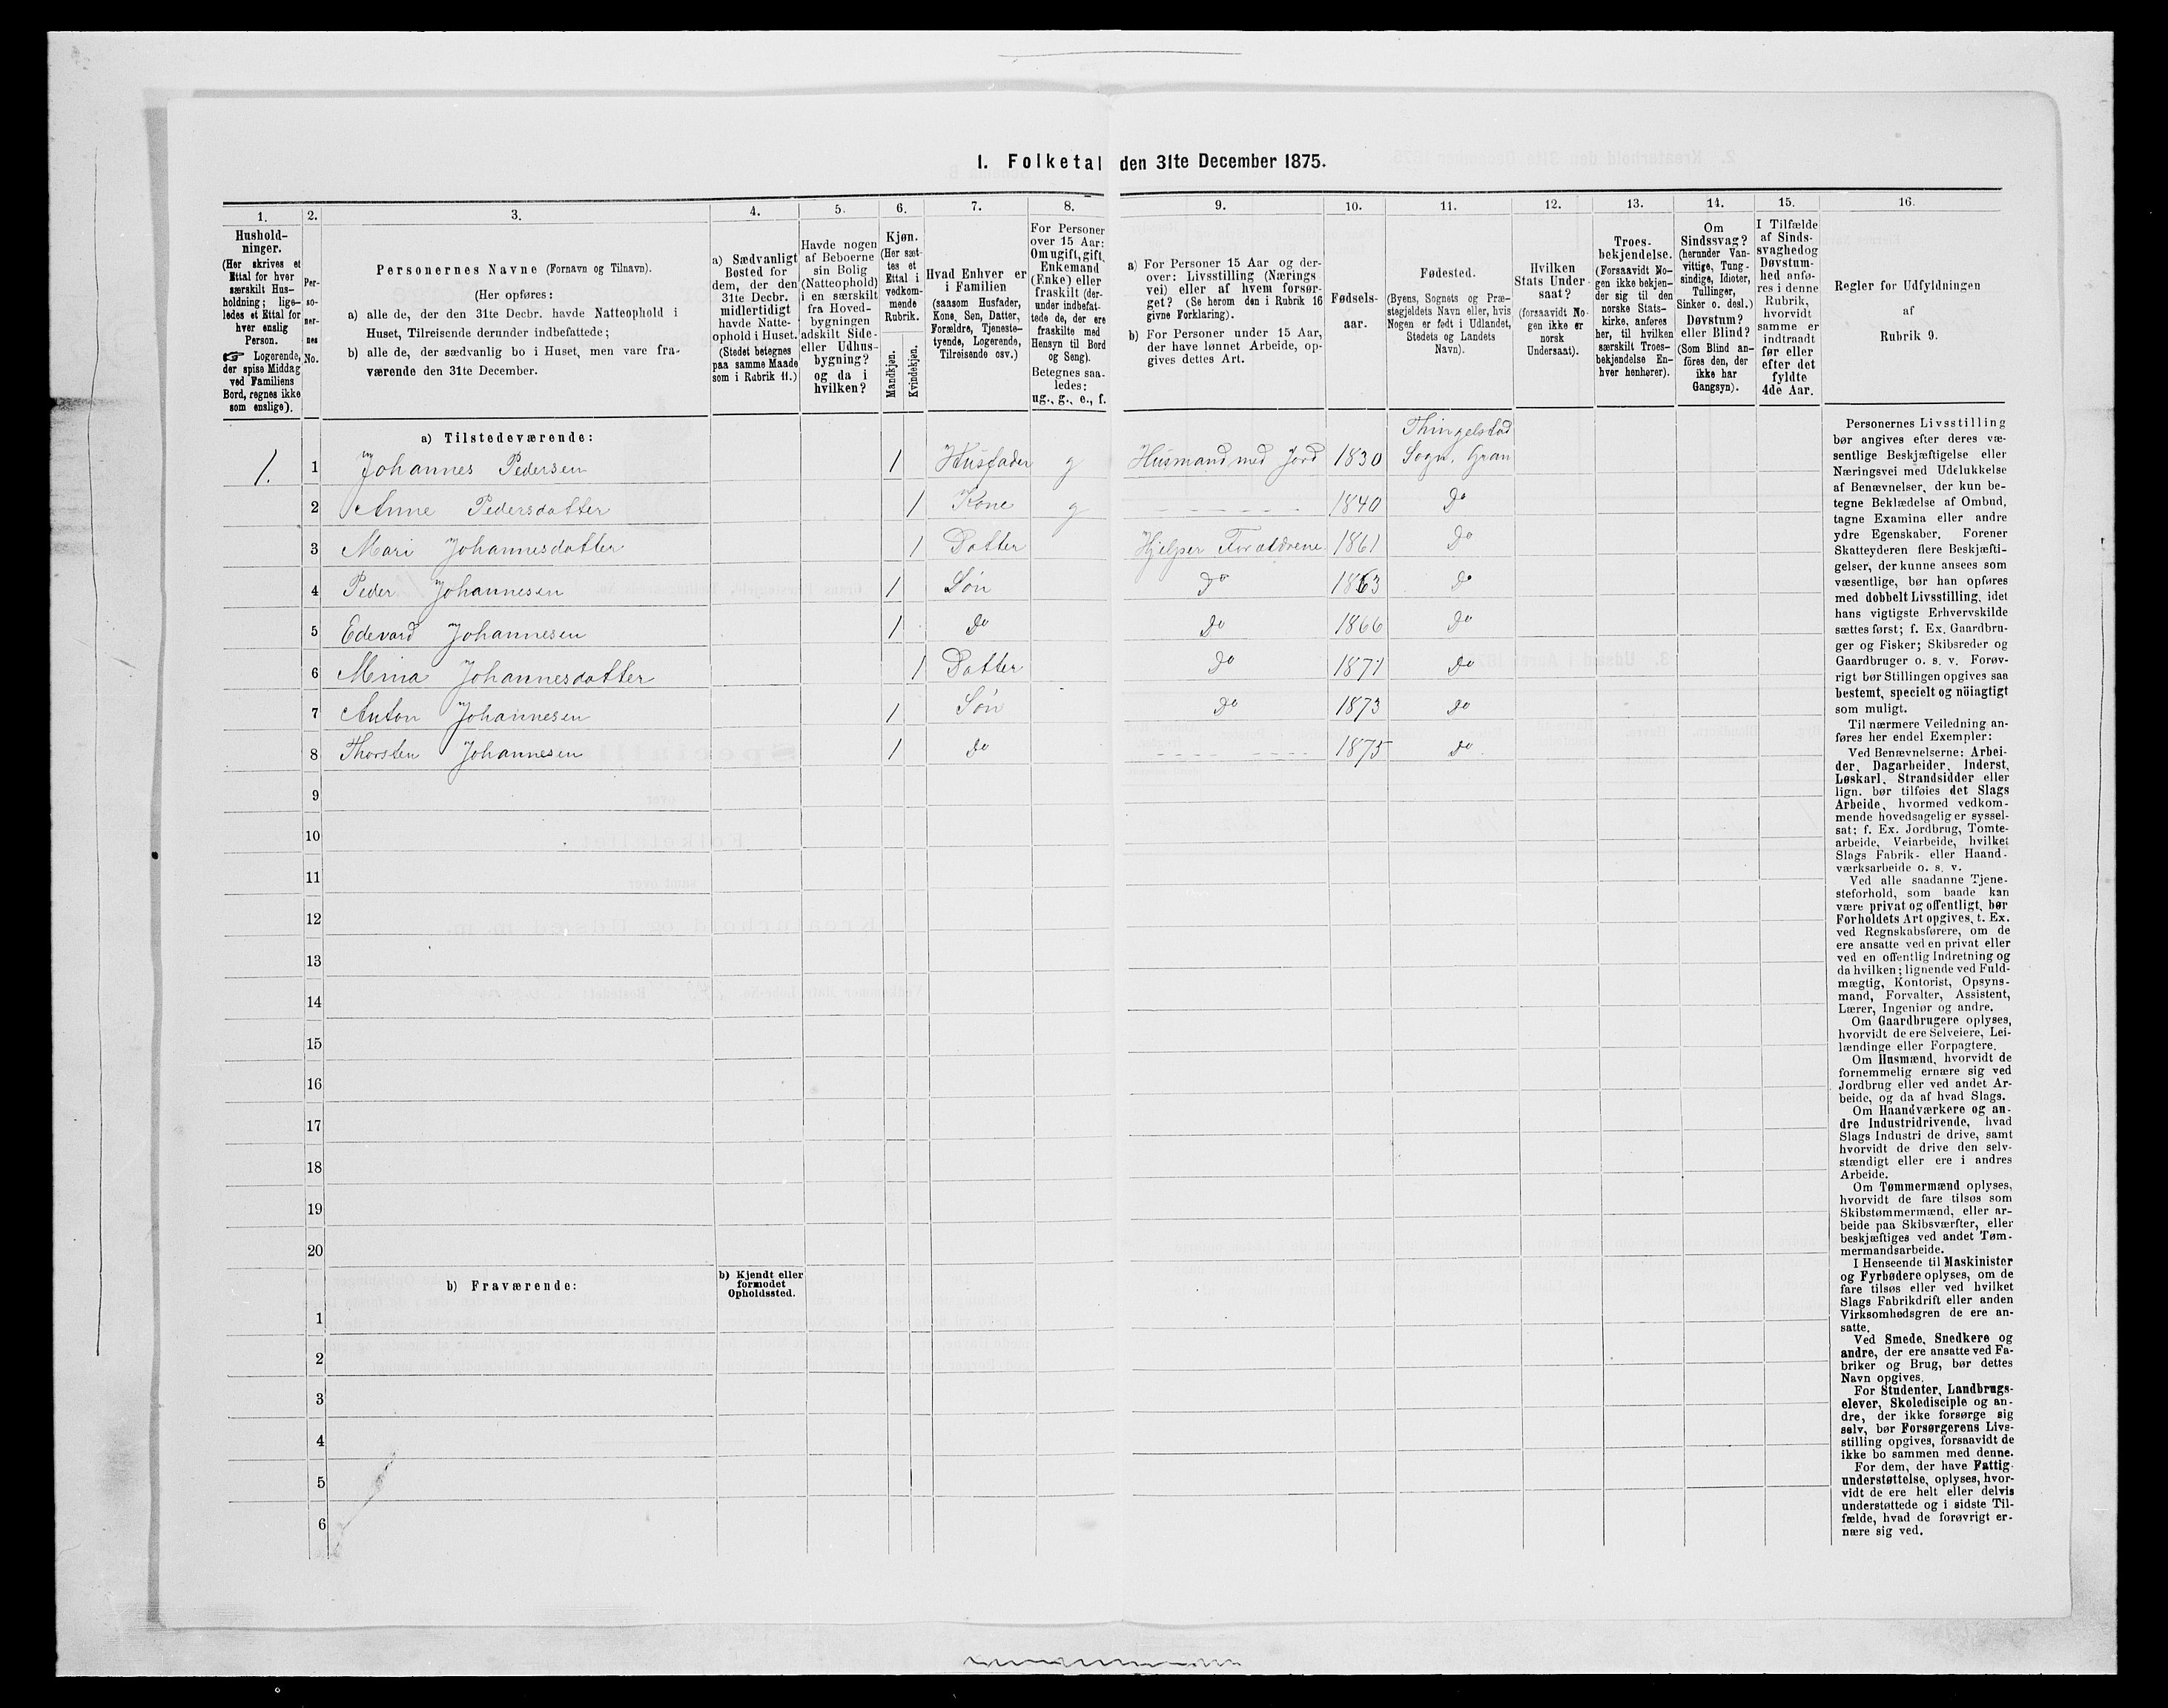 1. Folketal den 31te December 1875.
1.
2.
3.
4.
5.
6.
7.
8.
9.
10.
11.
12.
13.
14.
15.
16.
Hushold-
ninger.
(Her skrives et
Ettal for hver
særskilt Hus-
holdning; lige-
ledes et Ettal for
hver enslig
Person.
☞ Logerende,
der spise Middag
ved Familiens
Bord, regnes ikke
som enslige).
Per-
so-
ner-
nes
No.
Personernes Navne (Fornavn og Tilnavn).
(Her opføres:
a) alle de, der den 31te Decbr. havde Natteophold i
Huset, Tilreisende derunder indbefattede;
b) alle de, der sædvanlig bo i Huset, men vare fra-
værende den 31te December.
a) Sædvanligt
Bosted for
dem, der den
31te Decbr.
midlertidigt
havde Natte-
ophold i Huset.
(Stedet betegnes
paa samme Maade
som i Rubrik 11.)
Havde nogen
af Beboerne
sin Bolig
(Natteophold)
i en særskilt
fra Hoved-
bygningen
adskilt Side-
eller Udhus-
bygning?
og da i
hvilken?
Kjøn.
(Her sæt-
tes et
Ettal i
vedkom-
mende
Rubrik.
Mandkjøn.
Kvindekjøn.
Hvad Enhver er
i Familien
(saasom Husfader,
Kone, Søn, Datter,
Forældre, Tjeneste-
tyende, Logerende,
Tilreisende osv.)
For Personer
over 15 Aar:
Om ugift, gift,
Enkemand
(Enke) eller
fraskilt (der-
under indbefat-
tede de, der ere
fraskilte med
Hensyn til Bord
og Seng).
Betegnes saa-
ledes:
ug., g., e., f.
a) For Personer 15 Aar og der-
over: Livsstilling (Nærings
vei) eller af hvem forsør-
get? (Se herom den i Rubrik 16
givne Forklaring).
b) For Personer under 15 Aar,
der have lønnet Arbeide, op-
gives dettes Art.
Fødsels-
aar.
Fødested.
(Byens, Sognets og Præ-
stegjeldets Navn eller, hvis
Nogen er født i Udlandet,
Stedets og Landets
Navn).
Hvilken
Stats Under-
saat?
(forsaavidt No-
gen ikke er
norsk
Undersaat).
Troes-
bekjendelse.
(Forsaavidt No-
gen ikke bekjen-
der sig til den
norske Stats-
kirke, anføres
her, til hvilken
særskilt Troes-
bekjendelse En-
hver henhører).
Om
Sindssvag?
(herunder Van-
vittige, Tung-
sindige, Idioter,
Tullinger,
Sinker o. desl.)
Døvstum?
eller Blind?
(Som Blind an-
föres den, der
ikke har
Gangsyn).
I Tilfælde
af Sinds-
svaghed og
Døvstum-
hed anfø-
res i denne
Rubrik,
hvorvidt
samme er
indtraadt
før eller
efter det
fyldte
4de Aar.
Regler for Udfyldningen
af
Rubrik 9.
a) Tilstedeværende:
Thingelstad
1. 1 Johannes Pedersen 1 Husfader g Husmand med Jord 1830 Sogn. Gran
2 Anne Pedersdatter 1 Kone g - - - - - - 1840 Do
3 Mari Johannesdatter 1 Datter Hjelper Forældrene 1861 Do
4 Peder Johannesen 1 Søn Do 1863 Do
5 Edevard Johannesen 1 Do Do 1866 Do
6 Mina Johannesdatter 1 Datter Do 1871 Do
7 Anton Johannesen 1 Søn Do 1873 Do
8 Thorsten Johannesen 1 Do - - - - - - 1875 Do
9
10
11
12
13
14
15
16
17
18
19
20
b) Fraværende:
b) Kjendt eller
formodet
Opholdssted.
1
2
3
4
5
6
Personernes Livsstilling
bør angives efter deres væ-
sentlige Beskjæftigelse eller
Næringsvei med Udelukkelse
af Benævnelser, der kun be-
tegne Beklædelse af Ombud,
tagne Examina eller andre
ydre Egenskaber. Forener
Skatteyderen flere Beskjæfti-
gelser, der kunne ansees som
væsentlige, bør han opføres
med dobbelt Livsstilling, idet
hans vigtigste Erhvervskilde
sættes først; f. Ex. Gaardbru-
ger og Fisker; Skibsreder og
Gaardbruger o. s. v. Forøv-
rigt bør Stillingen opgives saa
bestemt, specielt og nöiagtigt
som muligt.
Til nærmere Veiledning an-
føres her endel Exempler:
Ved Benævnelserne: Arbei-
der, Dagarbeider, Inderst,
Løskarl, Strandsidder eller
lign. bør tilføies det Slags
Arbeide, hvormed vedkom-
mende hovedsagelig er syssel-
sat; f. Ex. Jordbrug, Tomte-
arbeide, Veiarbeide, hvilket
Slags Fabrik- eller Haand-
værksarbeide o. s. v.
Ved alle saadanne Tjene-
steforhold, som baade kan
være privat og offentligt, bør
Forholdets Art opgives, t. Ex.
ved Regnskabsførere, om de
ere ansatte ved en privat eller
ved en offentlig Indretning og
da hvilken; lignende ved Fuld-
mægtig, Kontorist, Opsyns-
mand, Forvalter, Assistent,
Lærer, Ingeniør og andre.
Om Gaardbrugere oplyses,
hvorvidt de ere Selveiere, Lei-
lændinge eller Forpagtere.
Om Husmænd, hvorvidt de
fornemmelig ernære sig ved
Jordbrug eller ved andet Ar-
beide, og da af hvad Slags.
Om Haandværkere og an-
dre Industridrivende, hvad
Slags Industri de drive, samt
hvorvidt de drive den selv-
stændigt eller ere i andres
Arbeide.
Om Tømmermænd oplyses,
hvorvidt de fare tilsøs som
Skibstømmermænd, eller ar-
beide paa Skibsværfter, eller
beskjæftiges ved andet Tøm-
mermandsarbeide.
I Henseende til Maskinister
og Fyrbødere oplyses, om de
fare tilsøs eller ved hvilket
Slags Fabrikdrift eller anden
Virksomhedsgren de ere an-
satte.
Ved Smede, Snedkere og
andre, der ere ansatte ved Fa-
briker og Brug, bør dettes
Navn opgives.
For Studenter, Landbrugs-
elever, Skoledisciple og an-
dre, der ikke forsørge sig
selv, bør Forsørgerens Livs-
stilling opgives, forsaavidt de
ikke bo sammen med denne.
For dem, der have Fattig-
understøttelse, oplyses, hvor-
vidt de ere helt eller delvis
understøttede og i sidste Til-
fælde, hvad de forøvrigt er-
nære sig ved.